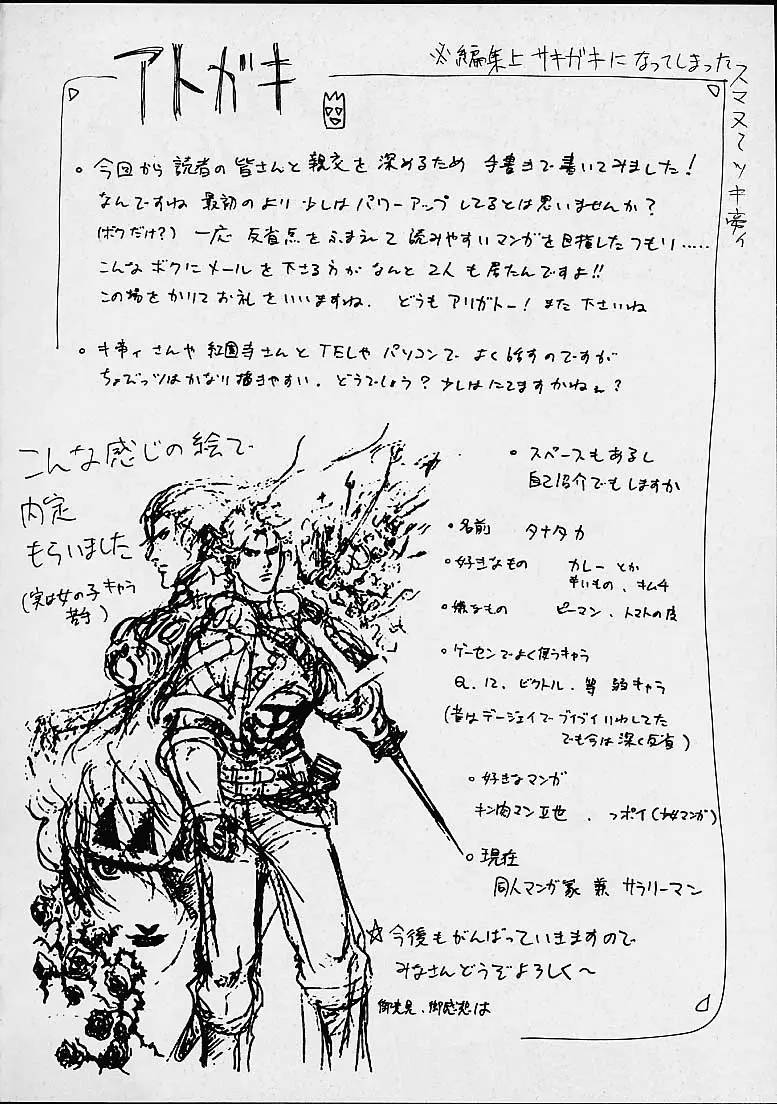 アトガキ
※編集上 サキガキになってしまった
スマヌ
。今回から読者の皆さんと親交を深めるため 手書きで書いてみました!
なんですね 最初のより 少しは パワーアップ してるとは思いませんか?
(ボクだけ?) 一応 反省点をふまえて 読みやすいマンガを目指したつもり.....
こんな ボクに メール を 下さる方が なんと 2人 も 居たんですよ!!
この場をかりて お礼をいいますね. どうも アリガトー! また 下さいね
。キ帝ィさんや 紅園寺さんと TELや パソコンで よく話すのですが
ちょびっツは かなり 描きやすい. どうでしょう? 少しは にてますかねぇ?
こんな感じの絵で
内定
もらいました
(実は女の子キャラ
苦手)
。スペースもあるし
自己紹介でもしますか
。名前 タナタカ
。好きなもの カレーとか
辛いもの、キムチ
。嫌なもの ピーマン、トマトの皮
。ゲーセンでよく使うキャラ
Q. 12. ビクトル. 等 弱キャラ
(昔はデージェイで ブイブイいわしてた
でも今は 深く反省)
。好きなマンガ
キン肉マンⅡ世 、っポイ(少女マンガ)
。現在
同人マンガ家 兼 サラリーマン
☆今後もがんばっていきますので
みなさんどうぞよろしく〜
御意見、御感想は